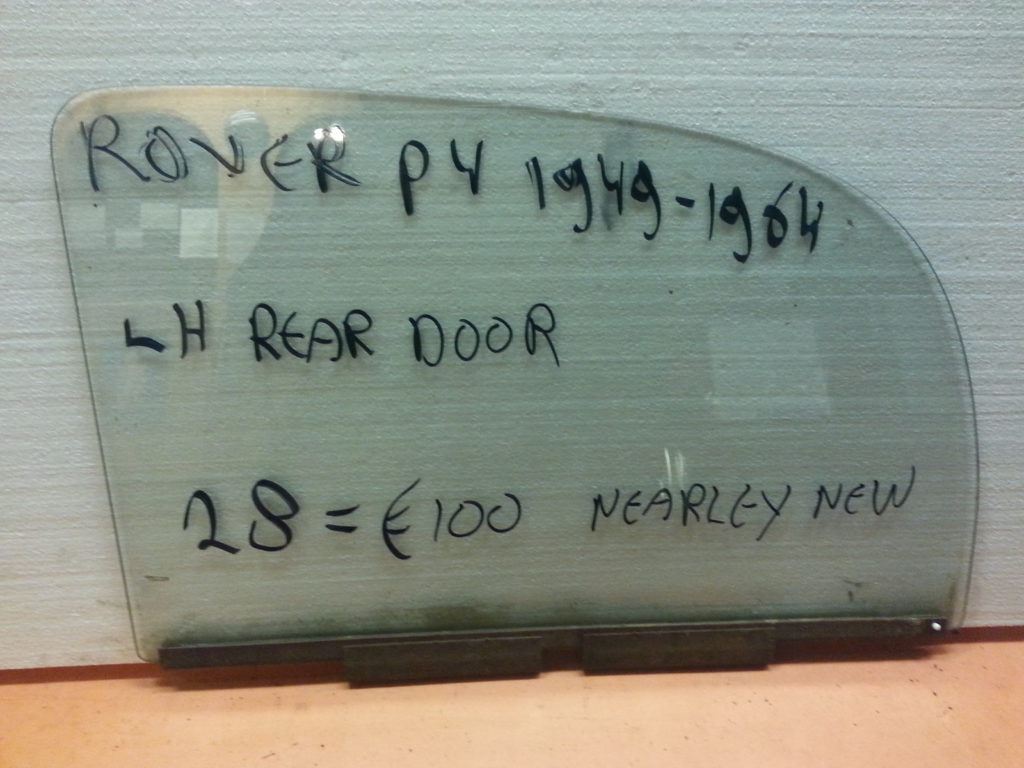 ROVER P4 1949-1964
LH REAR DOOR
28 = €100 NEARLEY NEW